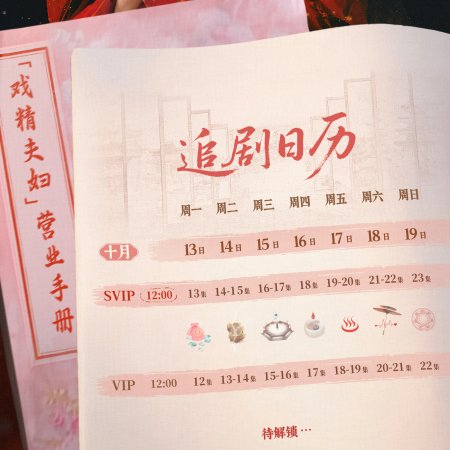 「戏精夫妇」营业手册
追剧日历
周一 周二 周三 周四 周五 周六 周日
十月 13日 14日 15日 16日 17日 18日 19日
SVIP 12:00 13集 14-15集 16-17集 18集 19-20集 21-22集 23集
VIP 12:00 12集 13-14集 15-16集 17集 18-19集 20-21集 22集
待解锁…